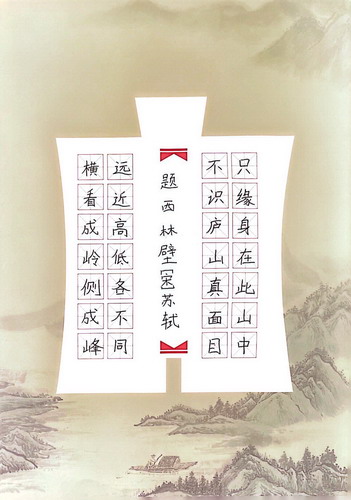 横看成岭侧成峰
远近高低各不同
题西林壁[宋]苏轼
不识庐山真面目
只缘身在此山中